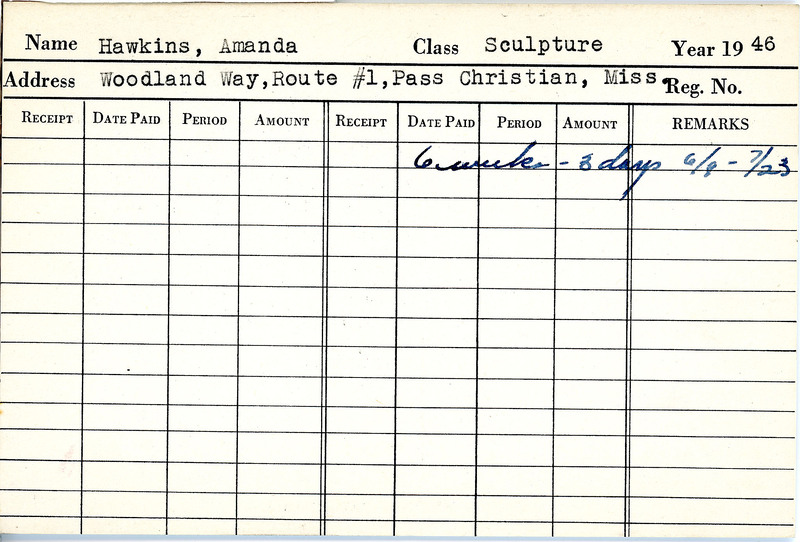 Name Hawkins, Amanda Class Sculpture Year 19 46
Address Woodland Way, Route #1, Pass Christian, Miss. Reg. No.
RECEIPT DATE PAID PERIOD AMOUNT RECEIPT DATE PAID PERIOD AMOUNT REMARKS
6 weeks - 3 days 6/9 - 7/23